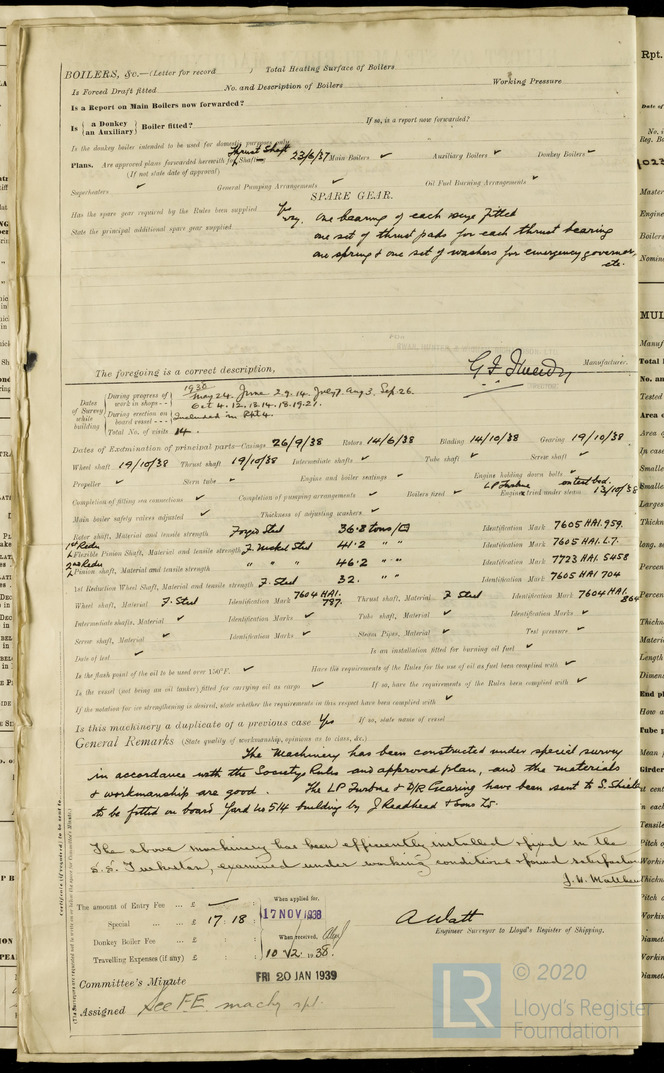 BOILERS, &c.—(Letter for record ) Total Heating Surface of Boilers
Is Forced Draft fitted No. and Description of Boilers Working Pressure
Is a Report on Main Boilers now forwarded?
Is { a Donkey / an Auxiliary } Boiler fitted? If so, is a report now forwarded?
Is the donkey boiler intended to be used for domestic purposes only
Plans. Are approved plans forwarded herewith for Shafting Thrust Shaft 23/6/37 Main Boilers ✓ Auxiliary Boilers ✓ Donkey Boilers ✓
(If not state date of approval)
Superheaters ✓ General Pumping Arrangements ✓ Oil Fuel Burning Arrangements ✓
SPARE GEAR.
Has the spare gear required by the Rules been supplied Yes
State the principal additional spare gear supplied one bearing of each size fitted
one set of thrust pads for each thrust bearing
one spring & one set of washers for emergency governor,
etc.
The foregoing is a correct description,
Manufacturer.
Dates of Survey while building
During progress of work in shops - - 1938 May 24. June 2.9.14. July 7. Aug 3. Sep. 26.
Oct 4. 12. 13. 14. 18. 19. 21.
During erection on board vessel - - - Included in Rpt 4.
Total No. of visits 14.
Dates of Examination of principal parts—Casings 26/9/38 Rotors 14/6/38 Blading 14/10/38 Gearing 19/10/38
Wheel shaft 19/10/38 Thrust shaft 19/10/38 Intermediate shafts ✓ Tube shaft ✓ Screw shaft ✓
Propeller ✓ Stern tube ✓ Engine and boiler seatings ✓ Engine holding down bolts ✓
Completion of fitting sea connections ✓ Completion of pumping arrangements ✓ Boilers fixed ✓ Engines tried under steam LP Turbine on test bed. 13/10/38
Main boiler safety valves adjusted ✓ Thickness of adjusting washers ✓
Rotor shaft, Material and tensile strength Forged Steel 36.8 tons/□" Identification Mark 7605 HAI. 959.
1st Redn Flexible Pinion Shaft, Material and tensile strength F. Nickel Steel 41.2 " " Identification Mark 7605 HAI. L.7.
2nd Redn Pinion shaft, Material and tensile strength " " " 46.2 " " Identification Mark 7723 HAI. 5458
1st Reduction Wheel Shaft, Material and tensile strength F. Steel 32. " " Identification Mark 7605 HAI 704
Wheel shaft, Material F. Steel Identification Mark 7604 HAI. 787. Thrust shaft, Material F Steel Identification Mark 7604 HAI. 864
Intermediate shafts, Material ✓ Identification Marks ✓ Tube shaft, Material ✓ Identification Marks ✓
Screw shaft, Material ✓ Identification Marks ✓ Steam Pipes, Material ✓ Test pressure ✓
Date of test ✓ Is an installation fitted for burning oil fuel ✓
Is the flash point of the oil to be used over 150°F. ✓ Have the requirements of the Rules for the use of oil as fuel been complied with ✓
Is the vessel (not being an oil tanker) fitted for carrying oil as cargo ✓ If so, have the requirements of the Rules been complied with ✓
If the notation for ice strengthening is desired, state whether the requirements in this respect have been complied with ✓
Is this machinery a duplicate of a previous case Yes If so, state name of vessel
General Remarks (State quality of workmanship, opinions as to class, &c.)
The Machinery has been constructed under special survey
in accordance with the Societys Rules and approved plan, and the materials
& workmanship are good. The LP Turbine & D/R Gearing have been sent to S. Shields
to be fitted on board Yard No 514 building by J Readhead & Sons Ltd.
The above machinery has been efficiently installed & fixed in the
S.S. examined under working conditions & found satisfactory
The amount of Entry Fee ... £ — When applied for,
Special ... £ 17 : 18 : 17 NOV 1938
Donkey Boiler Fee ... £ : : When received,
Travelling Expenses (if any) £ : : 10 12 1938.
A Watt
Engineer Surveyor to Lloyd's Register of Shipping.
Committee's Minute FRI 20 JAN 1939
Assigned See F.E. machy rpt.
LR
© 2020
Lloyd's Register
Foundation